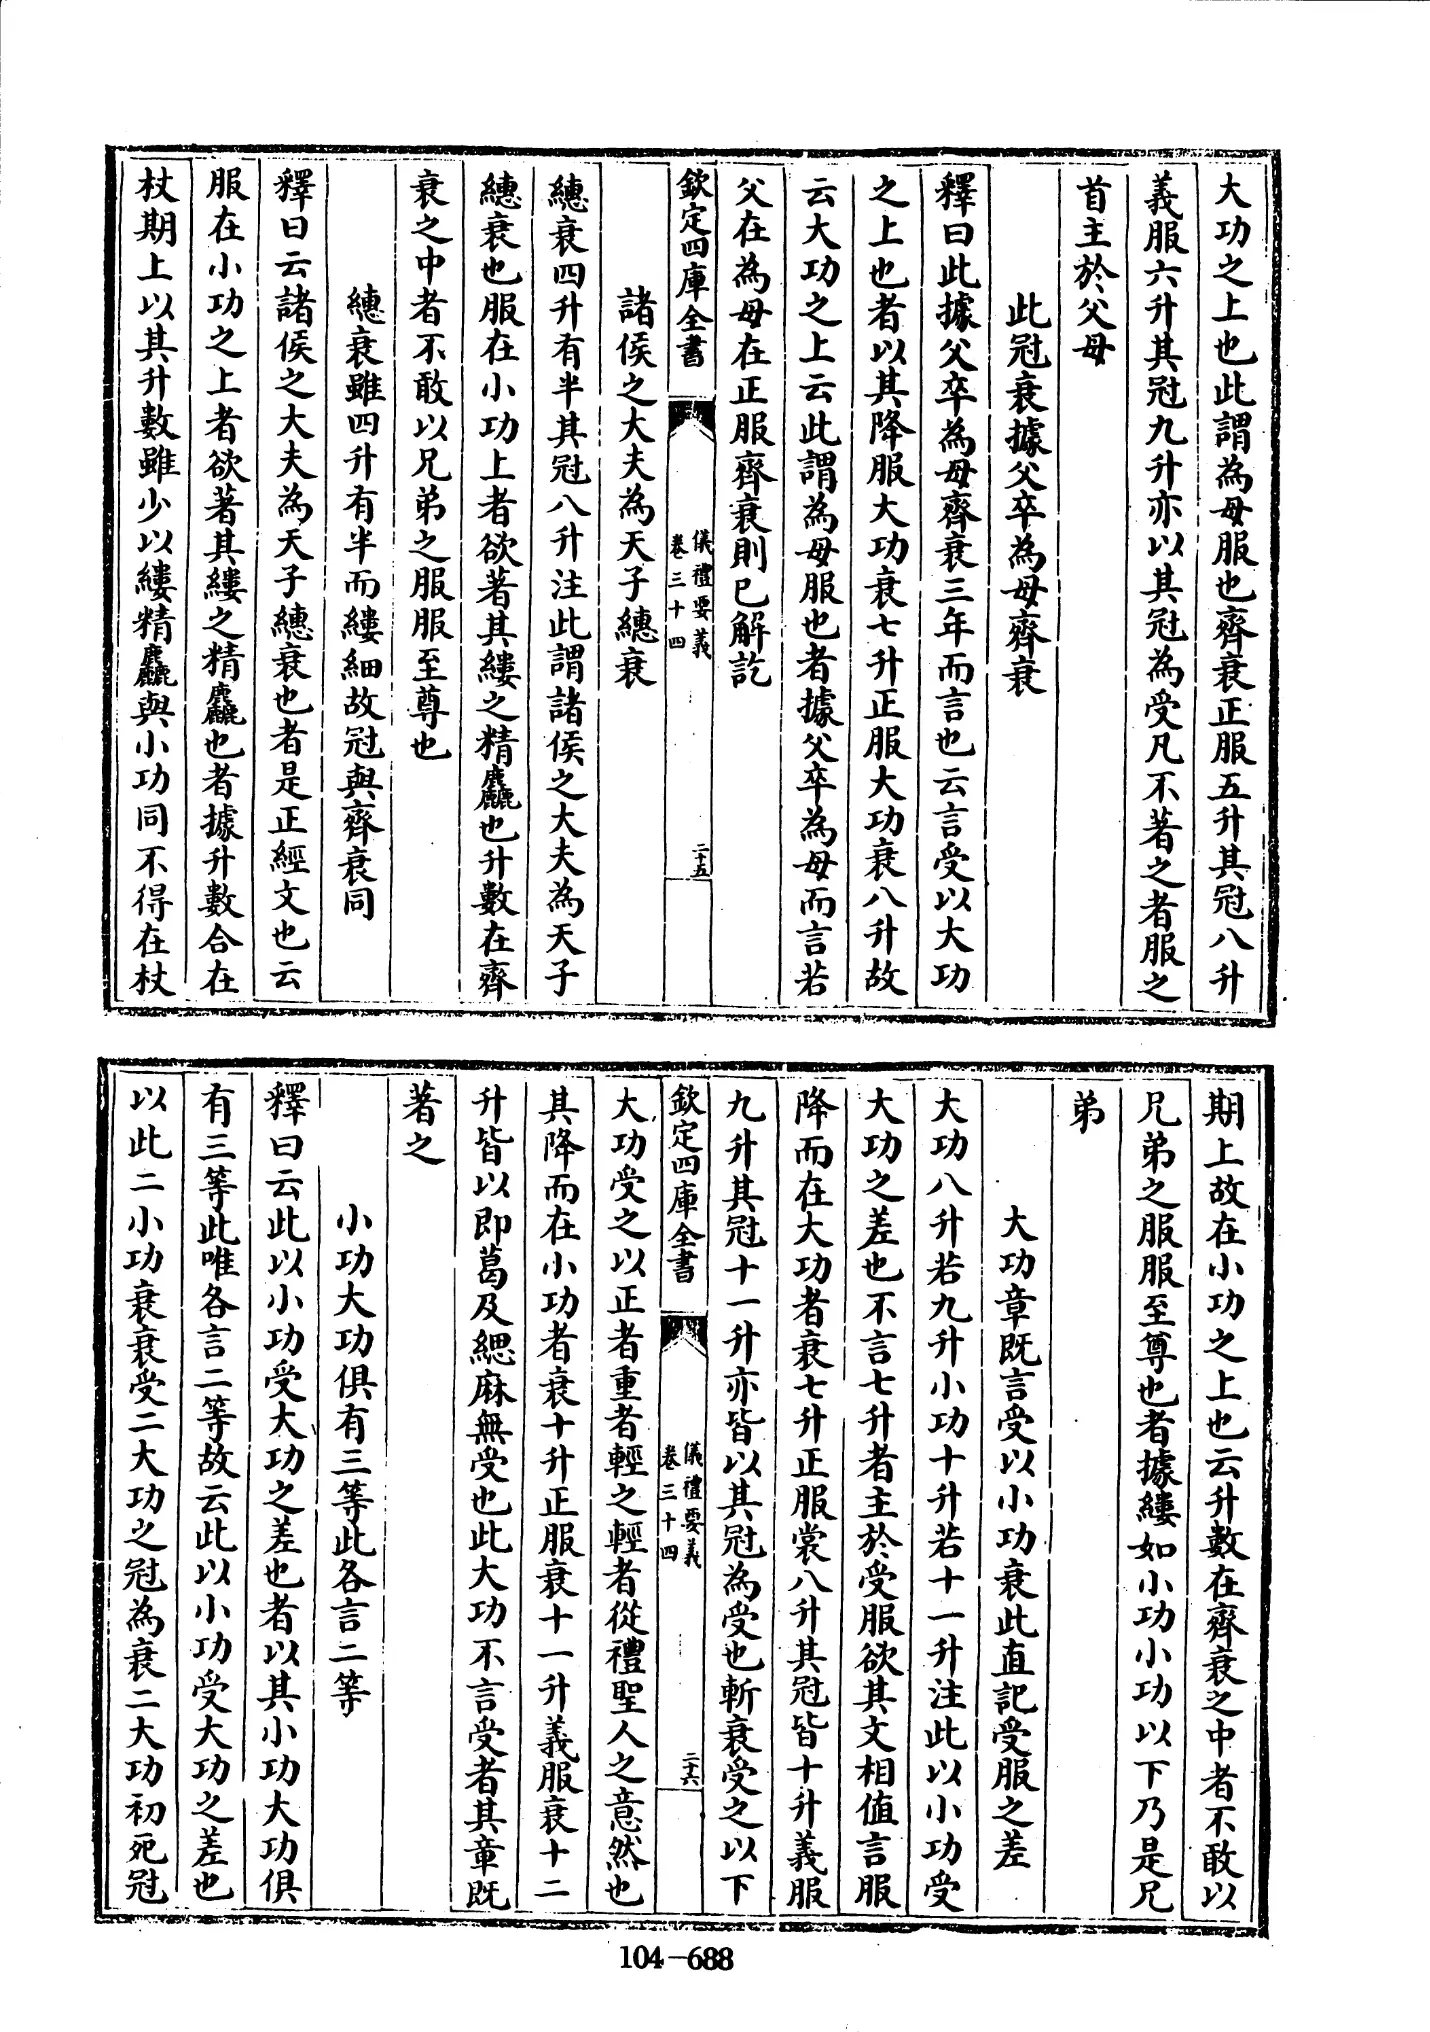 大功之上也此謂為母服也齊衰正服五升其冠八升
義服六升其冠九升亦以其冠為受凡不著之者服之
首主於父母
此冠衰據父卒為母齊衰
釋曰此據父卒為母齊衰三年而言也云言受以大功
之上也者以其降服大功衰七升正服大功衰八升故
云大功之上云此謂為母服也者據父卒為母而言若
父在為母在正服齊衰則已解訖
欽定四庫全書
儀禮要義
卷三十四
二十五
諸侯之大夫為天子繐衰
繐衰四升有半其冠八升注此謂諸侯之大夫為天子
繐衰也服在小功上者欲著其縷之精麤也升數在齊
衰之中者不敢以兄弟之服服至尊也
繐衰雖四升有半而縷細故冠與齊衰同
釋曰云諸侯之大夫為天子繐衰也者是正經文也云
服在小功之上者欲著其縷之精麤也者據升數合在
杖期上以其升數雖少以縷精麤與小功同不得在杖
期上故在小功之上也云升數在齊衰之中者不敢以
兄弟之服服至尊也者據縷如小功小功以下乃是兄
弟
大功章既言受以小功衰此直記受服之差
大功八升若九升小功十升若十一升注此以小功受
大功之差也不言七升者主於受服欲其文相值言服
降而在大功者衰七升正服裳八升其冠皆十升義服
九升其冠十一升亦皆以其冠為受也斬衰受之以下
欽定四庫全書
儀禮要義
卷三十四
二十六
大功受之以正者重者輕之輕者從禮聖人之意然也
其降而在小功者衰十升正服衰十一升義服衰十二
升皆以即葛及緦麻無受也此大功不言受者其章既
著之
小功大功俱有三等此各言二等
釋曰云此以小功受大功之差也者以其小功大功俱
有三等此唯各言二等故云此以小功受大功之差也
以此二小功衰衰受二大功之冠為衰二大功初死冠
104-688